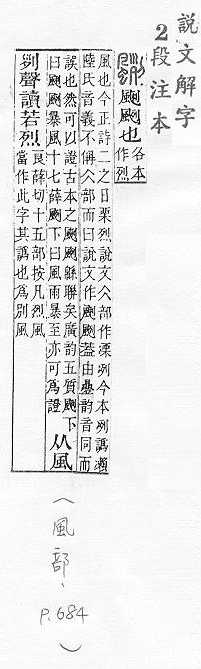 說文解字
2段注本
颲颲也各本
作烈
風也今正詩二之日栗烈說文仌部作凓冽今本冽譌瀨
陸氏音義不偁仌部而曰說文作颲颲葢由疊韵音同而
誤也然可以證古本之颲颲緜聯矣廣韵五質颲下
曰颲颲暴風十七薛颲下曰風雨暴至亦可爲證
从風
列聲讀若烈
良薛切十五部按凡烈風
當作此字其譌也爲別風
(風部、p.684)